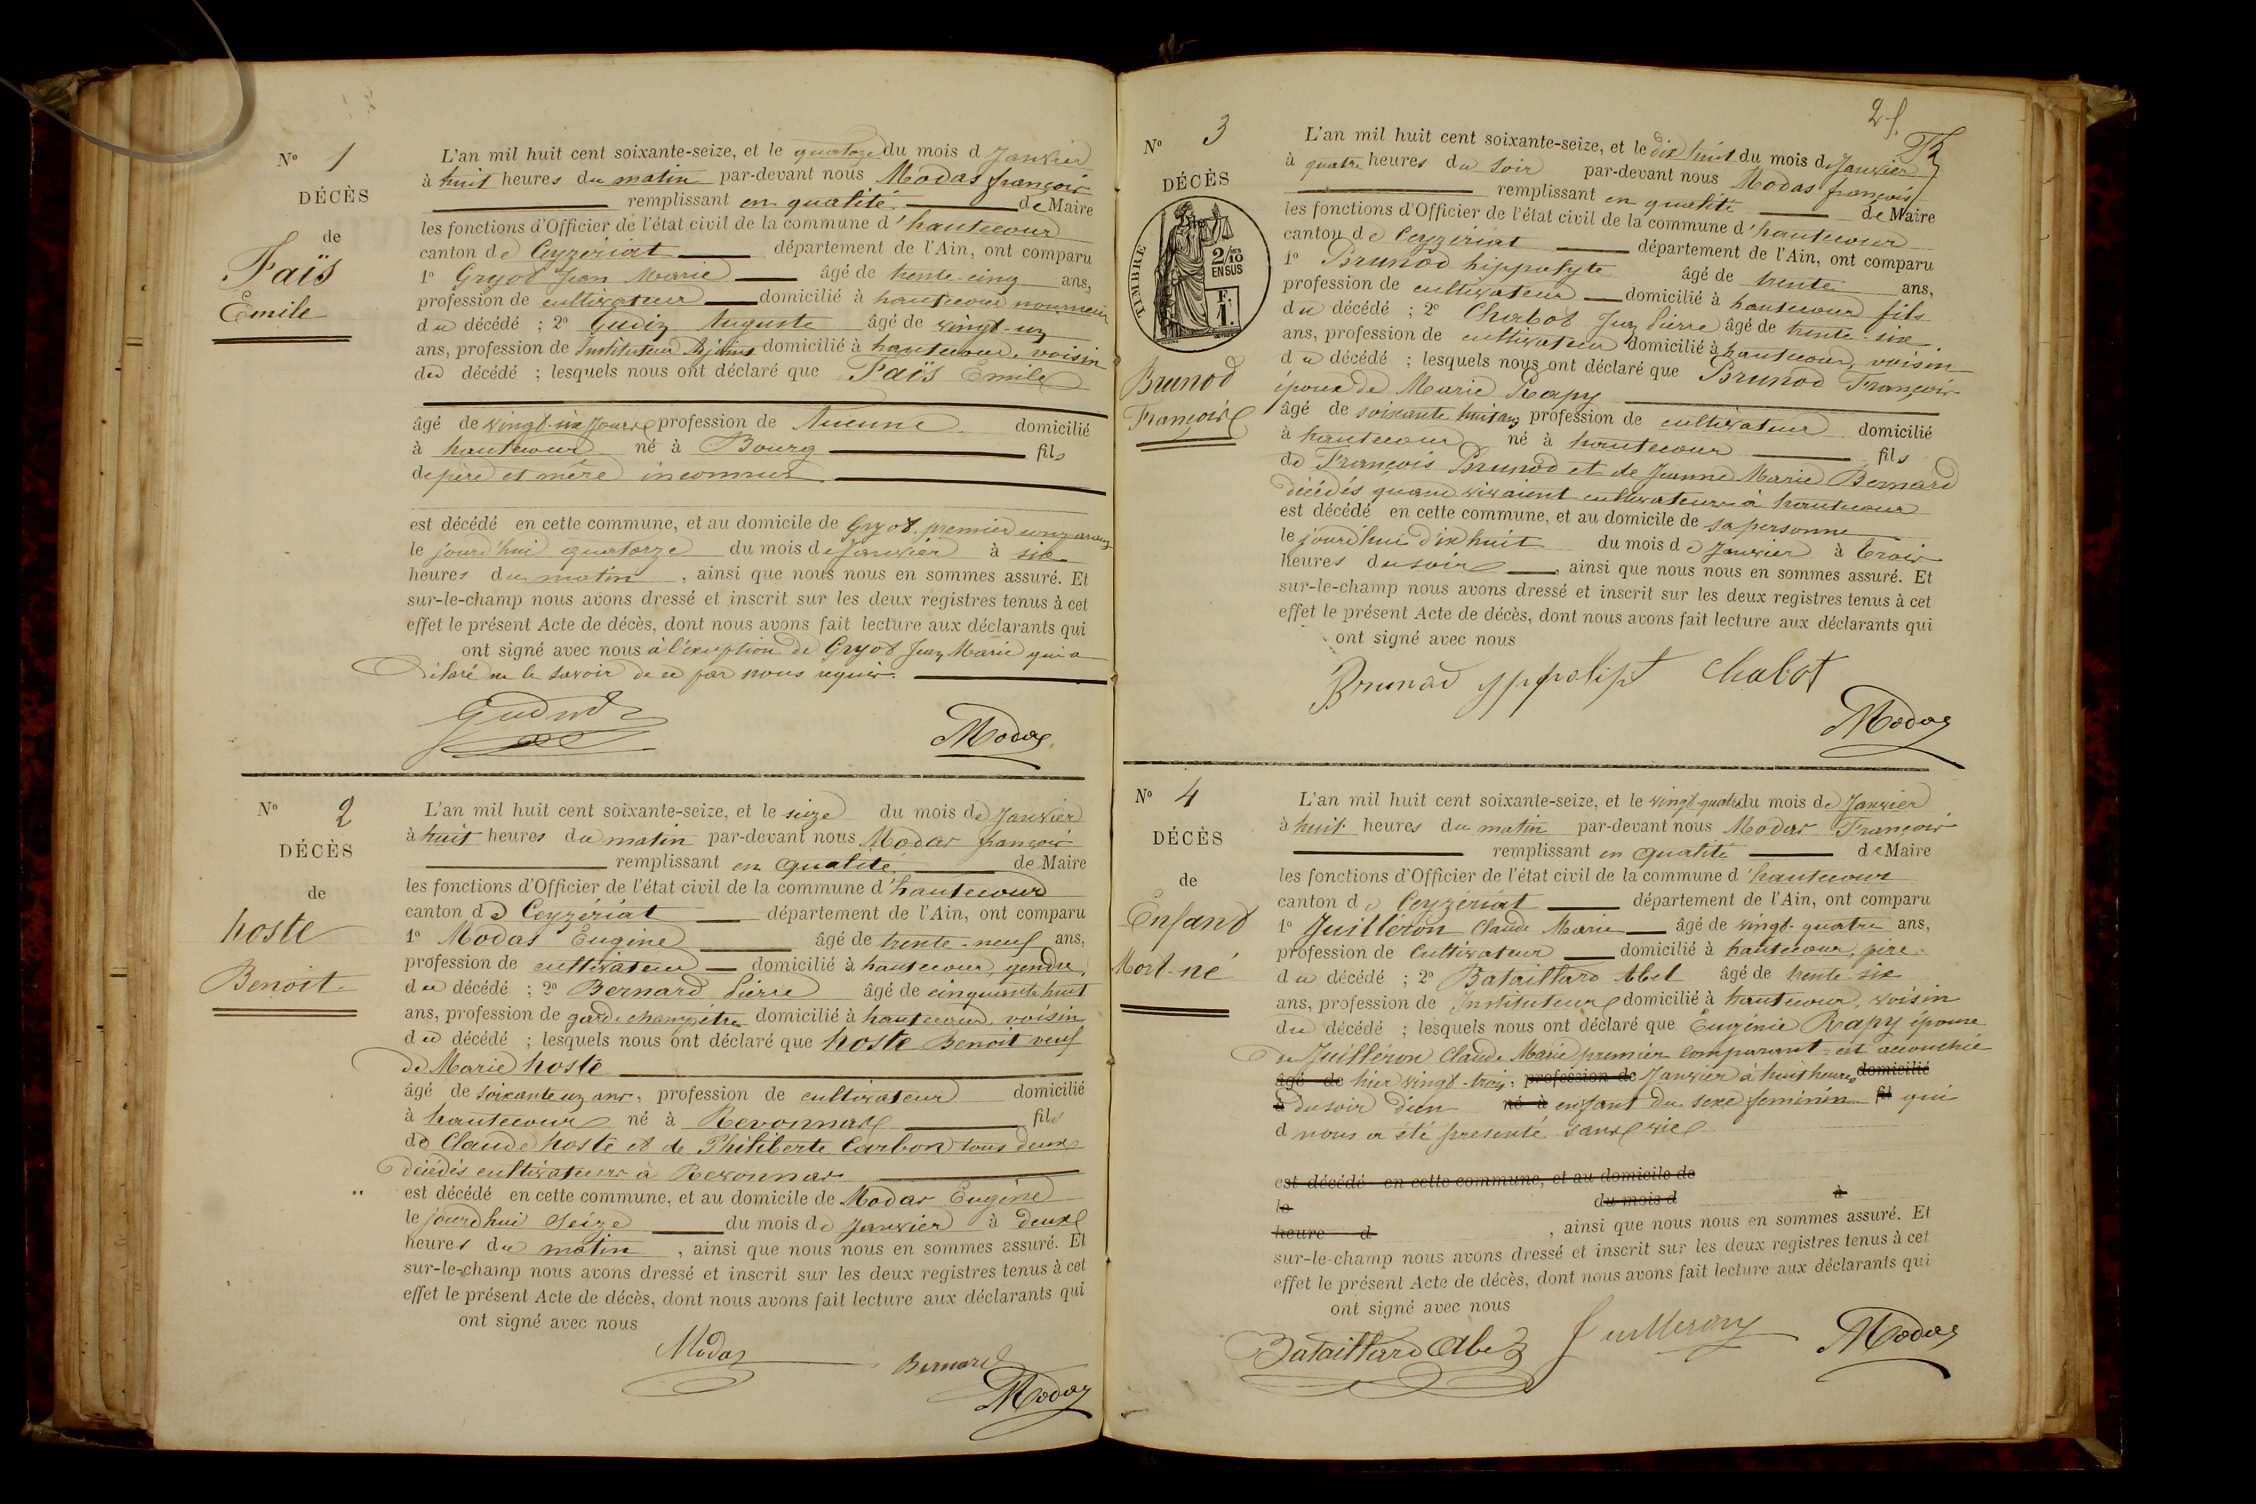 N° 1
DÉCÈS
de
Faïs
Emile
L'an mil huit cent soixante-seize, et le quatorze du mois d Janvier
à huit heures du matin par-devant nous Modas françois
remplissant en qualité de Maire
les fonctions d'Officier de l'état civil de la commune d'hautecour
canton de Ceyzériat département de l'Ain, ont comparu
1° Gryot Jean Marie âgé de trente-cinq ans,
profession de cultivateur domicilié à hautecour nourricier
du décédé ; 2° Gudin Auguste âgé de vingt-un
ans, profession de Instituteur Adjoint domicilié à hautecour, voisin
du décédé ; lesquels nous ont déclaré que Faïs Emile
âgé de vingt-six jours profession de Aucune domicilié
à hautecour né à Bourg fils
de père et mère inconnus
est décédé en cette commune, et au domicile de Gryot, premier comparant
le jourd'hui quatorze du mois de Janvier à six
heures du matin, ainsi que nous nous en sommes assuré. Et
sur-le-champ nous avons dressé et inscrit sur les deux registres tenus à cet
effet le présent Acte de décès, dont nous avons fait lecture aux déclarants qui
ont signé avec nous à l'éxeption de Gryot Jean Marie qui a
déclaré ne le savoir de ce par nous requis.
Gudin
Modas
N° 2
DÉCÈS
de
hoste
Benoit
L'an mil huit cent soixante-seize, et le seize du mois de Janvier
à huit heures du matin par-devant nous Modas françois
remplissant en qualité de Maire
les fonctions d'Officier de l'état civil de la commune d'hautecour
canton de Ceyzériat département de l'Ain, ont comparu
1° Modas Eugène âgé de trente-neuf ans,
profession de cultivateur domicilié à hautecour, gendre
du décédé ; 2° Bernard Pierre âgé de cinquante huit
ans, profession de garde champêtre domicilié à hautecour, voisin
du décédé ; lesquels nous ont déclaré que hoste Benoit veuf
de Marie hoste
âgé de soixante un ans, profession de cultivateur domicilié
à hautecour né à Revonnas fils
de Claude hoste et de Philiberte Carbon tous deux
décédés cultivateurs à Revonnas
est décédé en cette commune, et au domicile de Modas Eugène
le jourd'hui seize du mois de Janvier à deux
heures du matin, ainsi que nous nous en sommes assuré. Et
sur-le-champ nous avons dressé et inscrit sur les deux registres tenus à cet
effet le présent Acte de décès, dont nous avons fait lecture aux déclarants qui
ont signé avec nous
Modas
Bernard
Modas
2
N° 3
DÉCÈS
TIMBRE
2/10
EN SUS
F.
1.
Brunod
François
L'an mil huit cent soixante-seize, et le dix huit du mois de Janvier
à quatre heures du soir par-devant nous Modas françois
remplissant en qualité de Maire
les fonctions d'Officier de l'état civil de la commune d'hautecour
canton de Ceyzériat département de l'Ain, ont comparu
1° Brunod hippolyte âgé de trente ans,
profession de cultivateur domicilié à hautecour fils
du décédé ; 2° Chabot Jean Pierre âgé de trente-six
ans, profession de cultivateur domicilié à hautecour, voisin
du décédé ; lesquels nous ont déclaré que Brunod François
époux de Marie Rapy
âgé de soixante huit ans profession de cultivateur domicilié
à hautecour né à hautecour fils
de François Brunod et de Jeanne Marie Bernard
décédés quand vivaient cultivateurs à hautecour
est décédé en cette commune, et au domicile de sa personne
le jourd'hui dix huit du mois de Janvier à trois
heures du soir, ainsi que nous nous en sommes assuré. Et
sur-le-champ nous avons dressé et inscrit sur les deux registres tenus à cet
effet le présent Acte de décès, dont nous avons fait lecture aux déclarants qui
ont signé avec nous
Brunod Chabot
Modas
N° 4
DÉCÈS
de
Enfand
Mort-né
L'an mil huit cent soixante-seize, et le vingt-quatre du mois de Janvier
à huit heures du matin par-devant nous Modas François
remplissant en qualité de Maire
les fonctions d'Officier de l'état civil de la commune d'hautecour
canton de Ceyzériat département de l'Ain, ont comparu
1° Juilléron Claude Marie âgé de vingt-quatre ans,
profession de Cultivateur domicilié à hautecour, père
du décédé ; 2° Bataillard Abel âgé de trente-six
ans, profession de Instituteur domicilié à hautecour, voisin
du décédé ; lesquels nous ont déclaré que Eugénie Rapy épouse
de Juilléron Claude Marie premier comparant est accouchée
âgé de hier vingt-trois profession de Janvier à huit heures domicilié
à du soir d'un né à enfant du sexe féminin fil qui
d nous a été présenté sans vie
est décédé en cette commune, et au domicile de
le du mois d à
heure d , ainsi que nous nous en sommes assuré. Et
sur-le-champ nous avons dressé et inscrit sur les deux registres tenus à cet
effet le présent Acte de décès, dont nous avons fait lecture aux déclarants qui
ont signé avec nous
Bataillard Abel Juilleron Modas